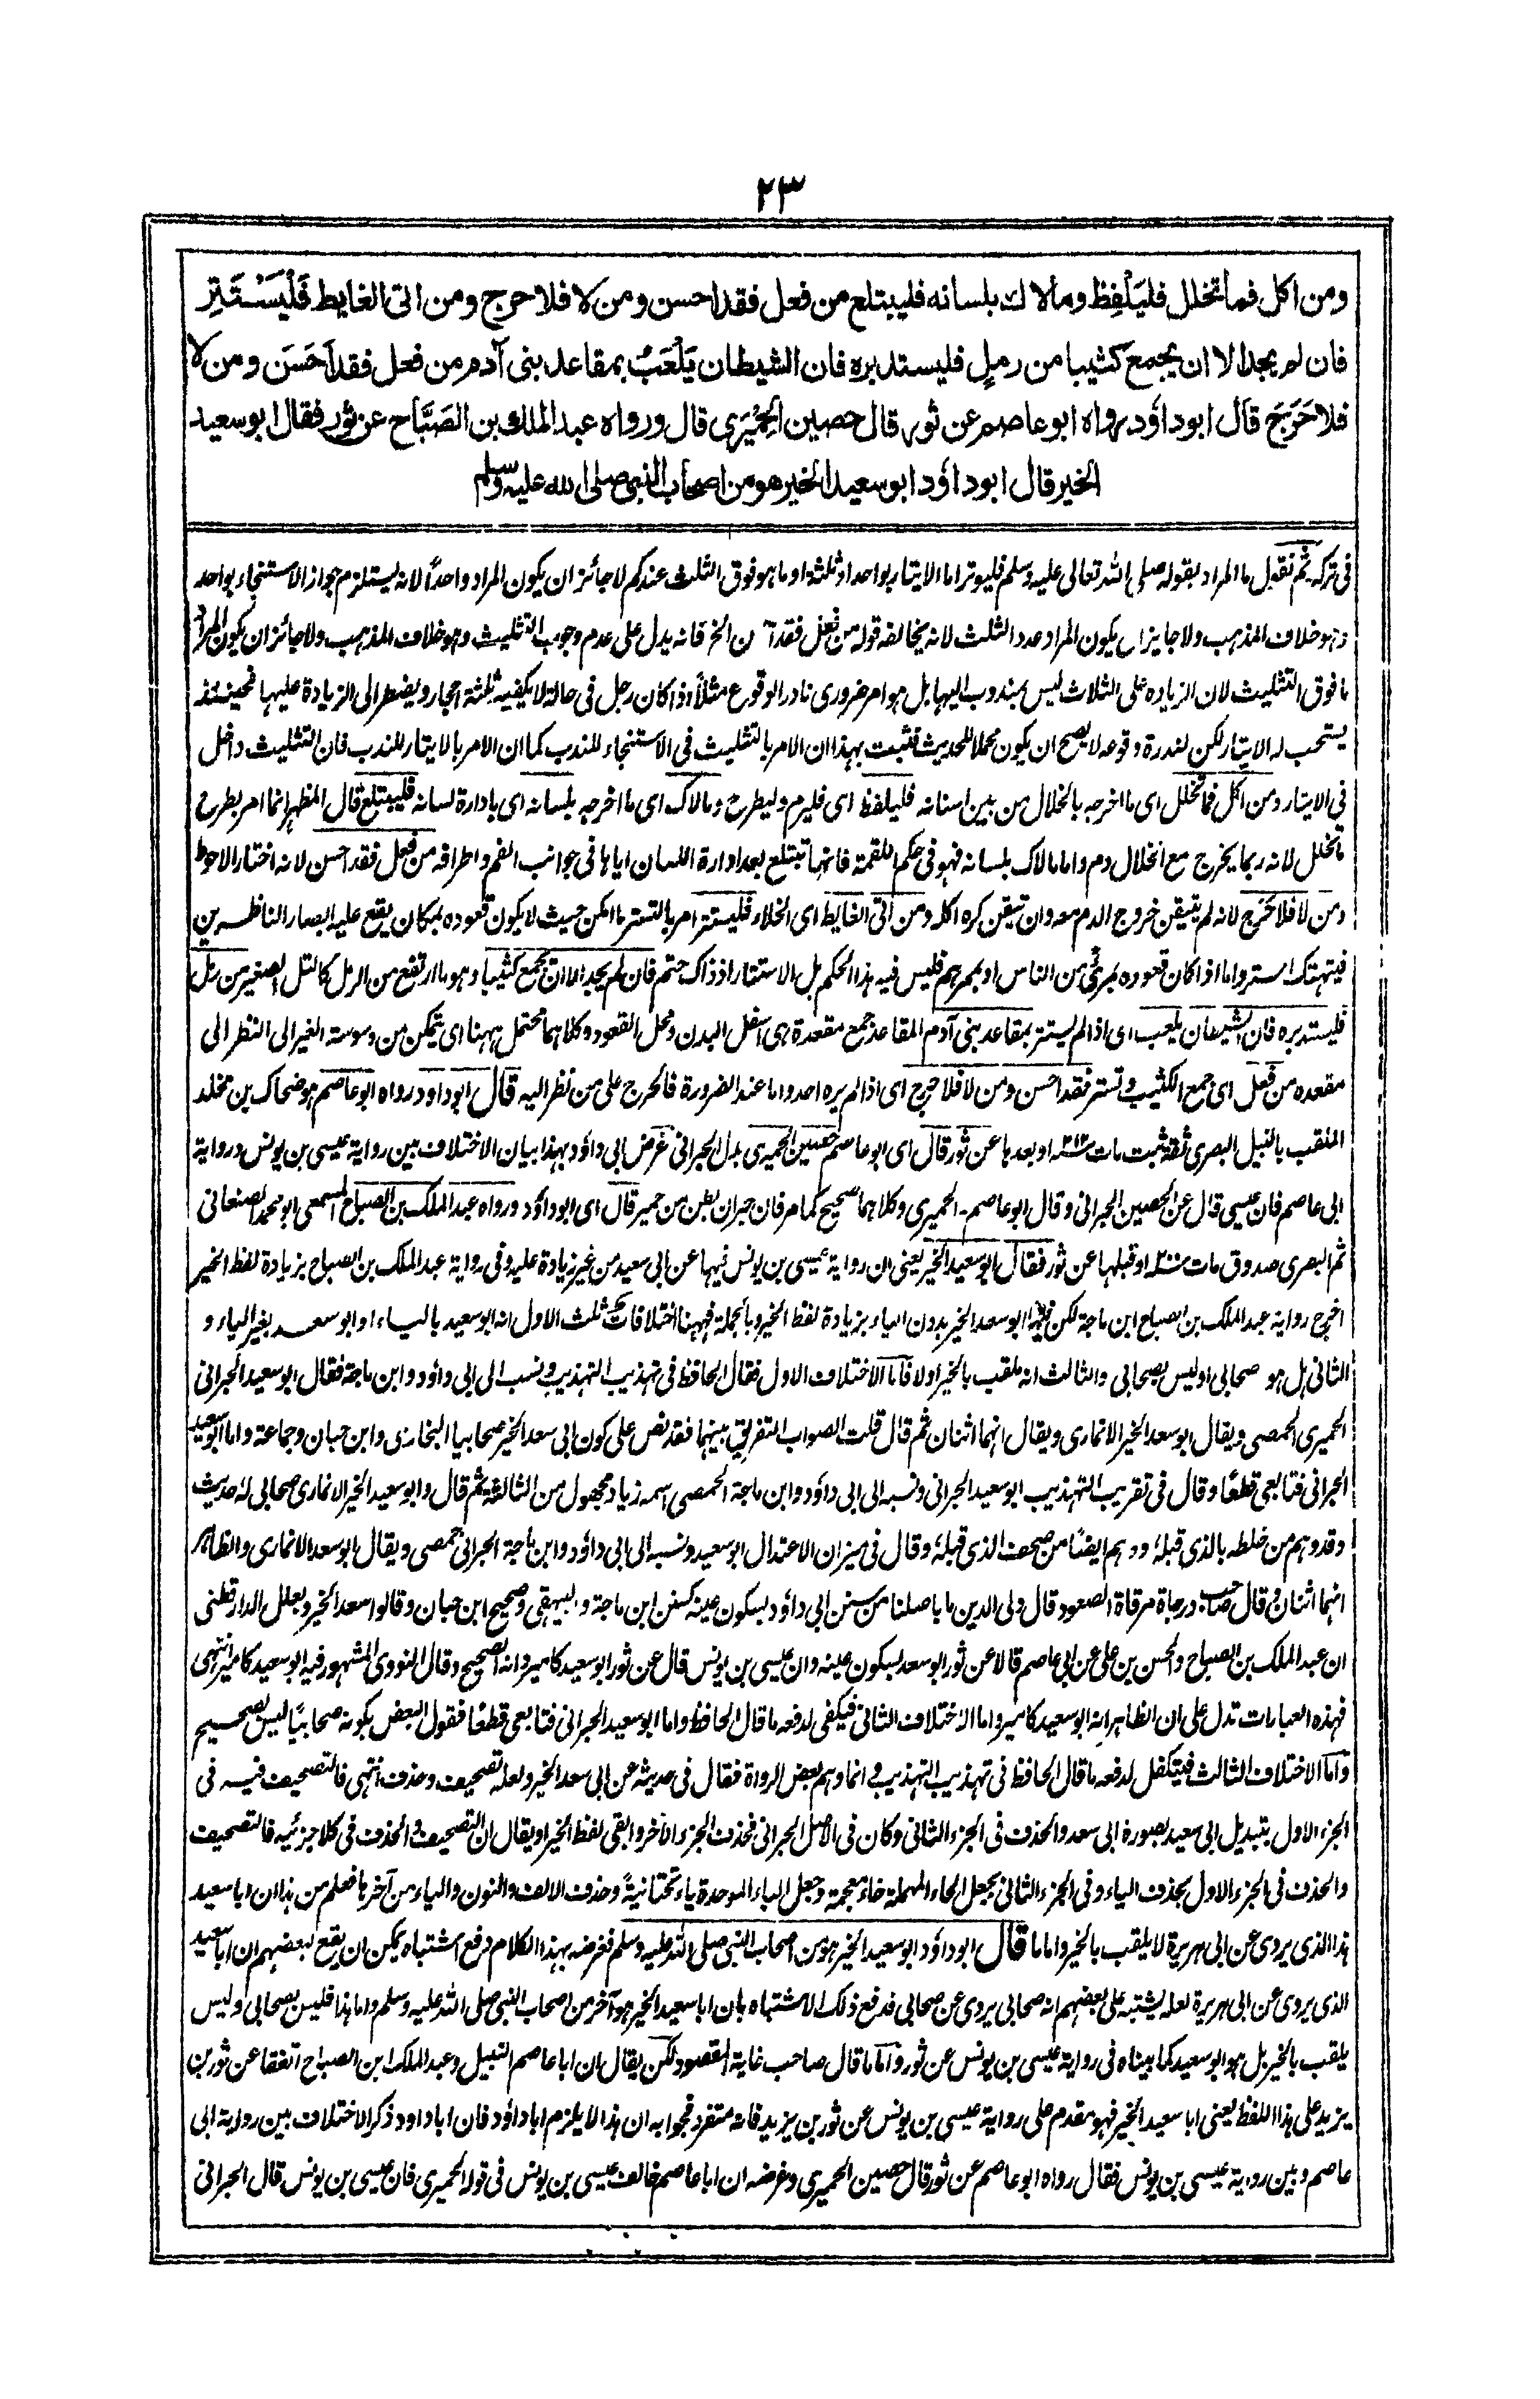 ٢٣
ومن اكل فما تخلل فليَلْفِظ وما لاك بلسانه فليبتلع من فعل فقد احسن ومن لا فلا حرج ومن اتى الغايط فَلْيَسْتَتِرْ
فان لم يجد الا ان يجمع كثيبا من رملٍ فليستدبره فان الشيطان يَلْعَبُ بمقاعد بنى آدم من فعل فقد اَحَسَنَ ومن لا
فلا حَرَجَ قال ابو داؤد رواه ابو عاصم عن ثور قال حصين الحِمْيَرى قال ورواه عبد الملك بن الصَبَّاح عن ثور فقال ابو سعيد
الخير قال ابو داؤد ابو سعيد الخير هو من اصحاب النبى صلى الله عليه وسلم
فى تركه ثم نقول ما المراد بقوله صلى الله تعالى عليه وسلم فليوتر اما الايتار بواحد او ثلثة او ما هو فوق الثلث عندكم لا جائز ان يكون المراد واحداً لانه يستلزم جواز الاستنجاء بواحد
وهو خلاف المذهب ولا جايز ان يكون المراد عدد الثلث لانه يخالفه قوله من فعل فقد ن الخ فانه يدل على عدم وجوب التثليث وهو خلاف المذهب ولا جائز ان يكون المراد
ما فوق التثليث لان الزياده على الثلاث ليس بمندوب اليها بل هو امر ضرورى نادر الوقوع مثلاً اذا كان رجل فى حالة لا يكفيه ثلثة احجار ويضطر الى الزيادة عليها فحينئذ
يستحب له الايتار لكن لندرة وقوعه لا يصح ان يكون محملا للحديث فثبت بهذا ان الامر بالتثليث فى الاستنجاء للندب كما ان الامر بالايتار للندب فان التثليث داخل
فى الايتار ومن اكل فما تخلل اى ما اخرجه بالخلال من بين اسنانه فليلفظ اى فليرم وليطرح وما لاك اى ما اخرجه بلسانه اى بادارة لسانه فليبتلع قال المظهر انما امر بطرح
ما تخلل لانه ربما يخرج مع الخلال دم واما ما لاك بلسانه فهو فى حكم اللقمة فانها تبتلع بعد ادارة اللسان اياها فى جوانب الفم واطرافه من فعل فقد احسن لانه اختار الاحوط
ومن لا فلا حرج لانه لم يتيقن خروج الدم معه وان تيقن كره اكله ومن اتى الغايط اى الخلاء فليستتر امر بالتستر ما امكن حيث لا يكون قعوده بمكان يقع عليه ابصار الناظرين
فيتهتك الستر واما اذا كان قعوده بمرئى من الناس او بممرهم فليس فيه هذا الحكم بل الاستتار اذ ذاك حتم فان لم يجد الا ان يجمع كثيبا وهو ما ارتفع من الرمل كالتل الصغير من رمل
فليستدبره فان الشيطان يلعب اى اذا لم يستتر بمقاعد بنى آدم المقاعد جمع مقعدة هى اسفل البدن ومحل القعود وكلاهما محتمل ههنا اى يتمكن من وسوسة الغير الى النظر الى
مقعده من فعل اى جمع الكثيب وتستر فقد احسن ومن لا فلا حرج اى اذا لم يره احد واما عند الضرورة فالحرج على من نظر اليه قال ابو داود رواه ابو عاصم هو ضحاك بن مخلد
الملقب بالنبيل البصرى ثقة ثبت مات ٢١٢ او بعدها عن ثور قال اى ابو عاصم حصين الحميرى بدل الحبرانى غرض ابى داؤد بهذا بيان الاختلاف بين رواية عيسى بن يونس ورواية
ابى عاصم فان عيسى قال عن الحصين الحبرانى وقال ابو عاصم الحميرى وكلاهما صحيح كما مر فان حبران بطن من حمير قال اى ابو داؤد ورواه عبد الملك بن الصباح المسمعى ابو محمد الصنعانى
ثم البصرى صدوق مات ٢٠٠ او قبلها عن ثور فقال ابو سعيد الخير يعنى ان رواية عيسى بن يونس فيها عن ابى سعيد من غير زيادة عليه وفى رواية عبد الملك بن الصباح بزيادة لفظ الخير
اخرج رواية عبد الملك بن الصباح ابن ماجة لكن فيه ابو سعد الخير بدون الياء بزيادة لفظ الخير وبالجملة فههنا اختلافات ثلث الاول انه ابو سعيد بالياء او ابو سعد بغير الياء و
الثانى هل هو صحابى او ليس بصحابى والثالث انه ملقب بالخير او لا فاما الاختلاف الاول فقال الحافظ فى تهذيب التهذيب ونسب الى ابى داؤد وابن ماجة فقال ابو سعيد الحبرانى
الحميرى الحمصى ويقال ابو سعد الخير الانمارى ويقال انهما اثنان ثم قال قلت الصواب التفريق بينهما فقد نص على كون ابى سعد الخير صحابيا البخارى وابن حبان وجماعة واما ابو سعيد
الحبرانى فتابعى قطعًا وقال فى تقريب التهذيب ابو سعيد الحبرانى ونسبه الى ابى داؤد وابن ماجة الحمصى اسمه زياد مجهول من الثالثة ثم قال وابو سعيد الخير الانمارى صحابى له حديث
وقد وهم من خلطه بالذى قبله ووهم ايضًا من صحف الذى قبله وقال فى ميزان الاعتدال ابو سعيد ونسبه الى ابى داؤد وابن ماجة الحبرانى حمصى ويقال ابو سعد الانمارى والظاهر
انهما اثنان وقال صاحب درجاة مرقاة الصعود قال ولى الدين ما باصلنا من سنن ابى داؤد بسكون عينه كسنن ابن ماجة والبيهقى وصحيح ابن حبان وقالوا سعد الخير وبعلل الدارقطنى
ان عبد الملك بن الصباح والحسن بن على عن ابى عاصم قالا عن ثور ابو سعد بسكون عينه وان عيسى بن يونس قال عن ثور ابو سعيد كامير وانه الصحيح وقال النووى المشهور فيه ابو سعيد كامير انتهى
فهذه العبارات تدل على ان الظاهر انه ابو سعيد كامير واما الاختلاف الثانى فيكفى لدفعه ما قال الحافظ واما ابو سعيد الحبرانى فتابعى قطعًا فقول البعض بكونه صحابيًا ليس بصحيح
واما الاختلاف الثالث فيتكفل لدفعه ما قال الحافظ فى تهذيب التهذيب وانما وهم بعض الرواة فقال فى حديثه عن ابى سعد الخير ولعله تصحيف وحذف انتهى فالتصحيف فيه فى
الجزء الاول بتبديل ابى سعيد بصورة ابى سعد والحذف فى الجزء الثانى وكان فى الاصل الحبرانى فحذف الجزء الآخر وابقى لفظ الخير او يقال ان التصحيف والحذف فى كلا جزئيه فالتصحيف
والحذف فى الجزء الاول بحذف الياء وفى الجزء الثانى بجعل الحاء المهملة خاء معجمة وجعل الباء الموحدة ياء تحتانيةً وحذف الالف والنون والياء من آخرها فعلم من هذا ان ابا سعيد
هذا الذى يروى عن ابى هريرة لا يلقب بالخير واما ما قال ابو داؤد ابو سعيد الخير هو من اصحاب النبى صلى الله عليه وسلم فغرضه بهذا الكلام رفع اشتباه يمكن ان يقع لبعضهم ان ابا سعيد
الذى يروى عن ابى هريرة لعله يشتبه على بعضهم انه صحابى يروى عن صحابى فدفع ذلك الاشتباه بان ابا سعيد الخير هو آخر من اصحاب النبى صلى الله عليه وسلم واما هذا فليس بصحابى وليس
يلقب بالخير بل هو ابو سعيد كما بيناه فى رواية عيسى بن يونس عن ثور واما ما قال صاحب غاية المقصود لكن يقال ان ابا عاصم النبيل وعبد الملك ابن الصباح اتفقا عن ثور بن
يزيد على هذا اللفظ يعنى ابا سعيد الخير فهو مقدم على رواية عيسى بن يونس عن ثور بن يزيد فانه متفرد فجوابه ان هذا لا يلزم ابا داؤد فان ابا داود ذكر الاختلاف بين رواية ابى
عاصم وبين رواية عيسى بن يونس فقال رواه ابو عاصم عن ثور قال حصين الحميرى وغرضه ان ابا عاصم خالف عيسى بن يونس فى قوله الحميرى فان عيسى بن يونس قال الحبرانى